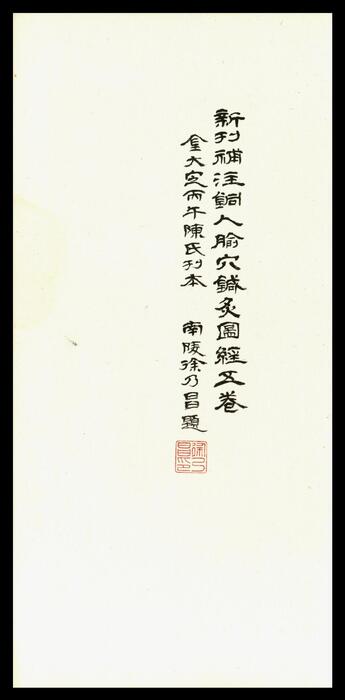 新刊補注銅人腧穴鍼灸圖經五卷
金大定丙午陳氏刊本　南陵徐乃昌題
徐乃昌印